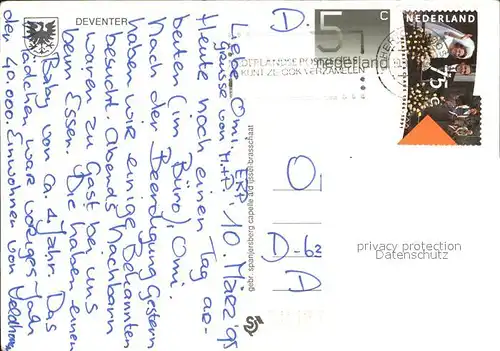 DEVENTER
D.
5
C
nederland
NEDERLAND
75
c
NEDERLANDSE POST
KUNT ZE OOK VERZAMELEN
Liebe Omi,
10. März '95
Grüsse von H+P
Heute noch einen Tag ar-
beiten (im Büro), Omi.
Nach der Beerdigung gestern
haben wir einige Bekannten
besucht. Abends Nachbarn
waren zu Gast bei uns
beim Essen. Die haben einen
Baby von ca. 1 Jahr. Das
Mädchen war voriges Jahr
der 40.000. Einwohner von
gebr. spanjersberg capelle a/d ijssel-brasschaat
O
D-62
D
privacy protection
Datenschutz